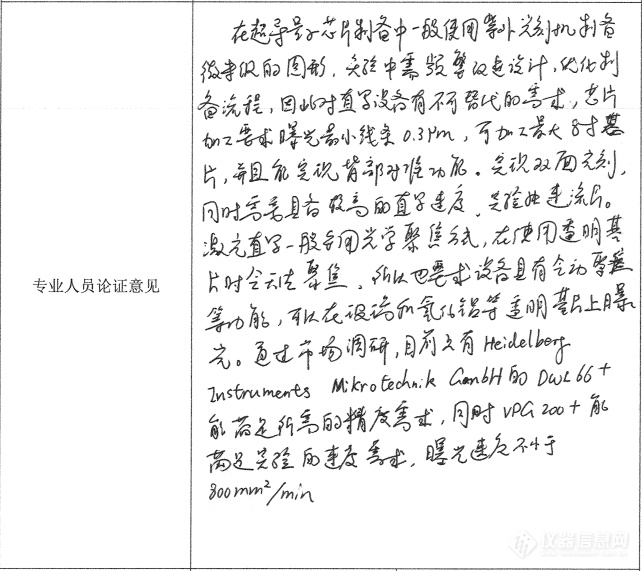 专业人员论证意见
在超导量子芯片制备中一般使用紫外光刻机制备
微米级的图形，实验中需频繁改变设计，优化制
备流程，因此对直写设备有不可替代的需求，芯片
加工要求曝光最小线条 0.3μm，可加工最大 8寸基
片，并且能实现背部对准功能。实现双面光刻，
同时需要具备较高的直写速度，实验快速流片。
激光直写一般会用光学聚焦方式，在使用透明基
片时会无法聚焦，所以也要求设备具有气动聚焦
等功能，可以在玻璃和氧化铝等透明基片上曝
光。通过市场调研，目前只有 Heidelberg
Instruments Mikrotechnik GmbH 的 DWL66+
能满足所需的精度需求，同时 VPG 200+ 能
满足实验的速度需求，曝光速度不小于
800mm²/min
仪器信息网